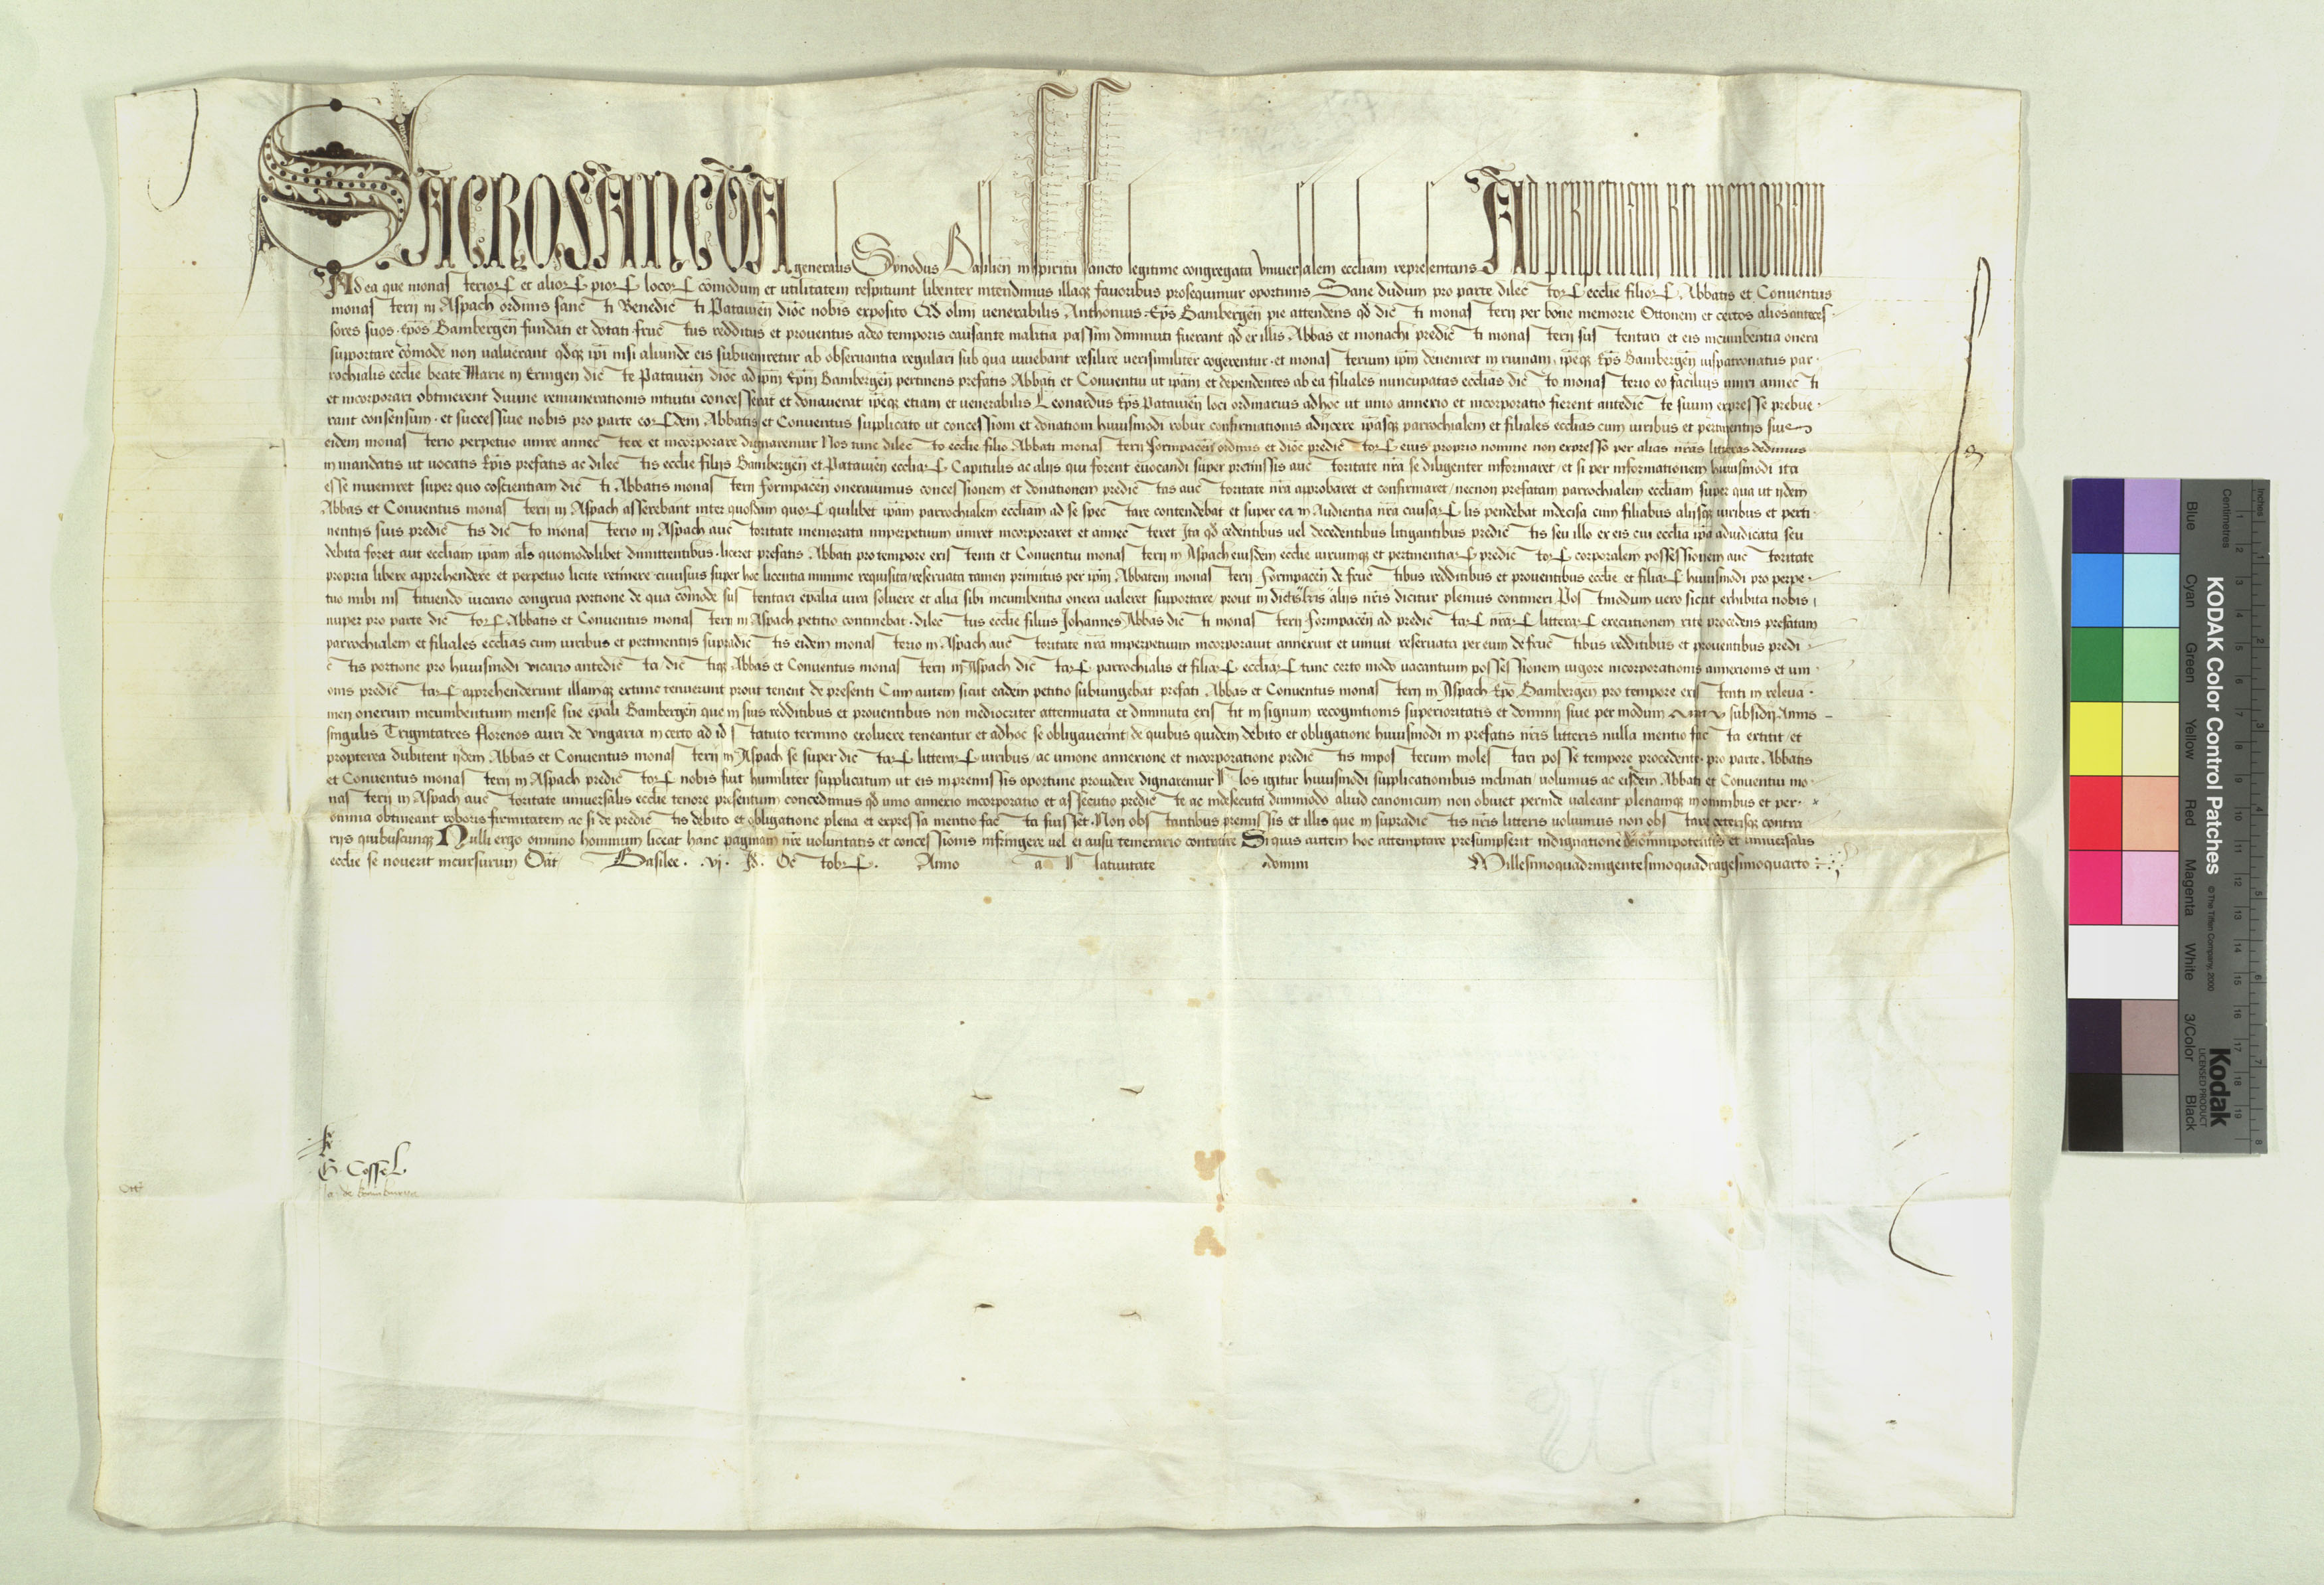 SACROSANCTA generalis Synodus Basilien̄ in spiritu sancto legitime congregata vniuersalem eccl̄iam representans Ad perpetuam rei memoriam
Ad ea que monasteriorꝝ et aliorꝝ piorꝝ locorꝝ com̄odum et utilitatem respitiunt libenter intendimus illaqꝫ fauoribus prosequimur oportunis Sane dudum pro parte dilectorꝝ eccl̄ie filiorꝝ Abbatis et Conuentus
monasterij in Aspach ordinis sancti Benedicti Patauien̄ dioc̄ nobis exposito Qd̄ olim venerabilis Anthonius Ep̄s Bambergen̄ pie attendens qd̄ dicti monasterij per bone memorie Ottonem et certos alios anteces-
sores suos Ep̄os Bambergen̄ fundati et dotati fructus redditus et prouentus adeo temporis causante malitia passim diminuti fuerant qd̄ ex illis Abbas et monachi predicti monasterij sustentari et eis incumbentia onera
supportare com̄ode non ualuerant qd̄qꝫ ip̄i nisi aliunde eis subueniretur ab obseruantia regulari sub qua uiuebant resilire uerisimiliter cogerentur et monasterium ip̄m deueniret in ruinam ip̄eqꝫ Ep̄s Bambergen̄ iuspatronatus par-
rochialis eccl̄ie beate Marie in Eringen dicte Patauien̄ dioc̄ ad ip̄m Ep̄m Bambergen̄ pertinens prefatis Abbati et Conuentui ut ip̄am et dependentes ab ea filiales nuncupatas eccl̄ias dicto monasterio eo facilius uniri annecti
et incorporari obtinerent diuine remunerationis intuitu concesserat et donauerat ip̄eqꝫ etiam et venerabilis Leonardus Ep̄s Patauien̄ loci ordinarius adhoc ut unio annexio et incorporatio fierent antedicte suum expresse prebue-
rant consensum et successiue nobis pro parte eorꝝdem Abbatis et Conuentus supplicato ut concessioni et donationi huiusmodi robur confirmationis adijcere ip̄asqꝫ parrochialem et filiales eccl̄ias cum iuribus et pertinentijs suis
eidem monasterio perpetuo unire annectere et incorporare dignaremur Nos tunc dilecto eccl̄ie filio Abbati monasterij Formpacen̄ ordinis et dioc̄ predictorꝝ eius proprio nomine non expresso per alias nr̄as litteras dedimus
in mandatis ut uocatis Ep̄is prefatis ac dilectis eccl̄ie filijs Bambergen̄ et Patauien̄ eccl̄iarꝝ Capitulis ac alijs qui forent euocandi super premissis auctoritate nr̄a se diligenter informaret et si per informationem huiusmodi ita
esse inueniret super quo conscientiam dicti Abbatis monasterij Formpacen̄ onerauimus concessionem et donationem predictas auctoritate nr̄a approbaret et confirmaret necnon prefatam parrochialem eccl̄iam super qua ut ijdem
Abbas et Conuentus monasterij in Aspach asserebant inter quosdam quorꝝ quilibet ip̄am parrochialem eccl̄iam ad se spectare contendebat et super ea in Audientia nr̄a causarꝝ lis pendebat indecisa cum filiabus alijsqꝫ iuribus et perti-
nentijs suis predictis dicto monasterio in Aspach auctoritate memorata imperpetuum uniret incorporaret et annecteret Ita qd̄ cedentibus uel decedentibus litigantibus predictis seu illo ex eis cui eccl̄ia ip̄a adiudicata seu
debita foret aut eccl̄iam ip̄am al̄s quomodolibet dimittentibus liceret prefatis Abbati pro tempore existenti et Conuentui monasterij in Aspach eiusdem eccl̄ie iuriumqꝫ et pertinentiarꝝ predictorꝝ corporalem possessionem auctoritate
propria libere apprehendere et perpetuo licite retinere cuiusuis super hoc licentia minime requisita reseruata tamen primitus per ip̄m Abbatem monasterij Formpacen̄ de fructibus redditibus et prouentibus eccl̄ie et filiarꝝ huiusmodi pro perpe-
tuo inibi instituendo uicario congrua portione de qua com̄ode sustentari ep̄alia iura soluere et alia sibi incumbentia onera ualeret supportare prout in dictis lr̄is alijs nr̄is dicitur plenius contineri Postmodum uero sicut exhibita nobis
nuper pro parte dictorꝝ Abbatis et Conuentus monasterij in Aspach petitio continebat dilectus eccl̄ie filius Johannes Abbas dicti monasterij Formpacen̄ ad predictarꝝ nr̄arꝝ litterarꝝ executionem rite procedens prefatam
parrochialem et filiales eccl̄ias cum iuribus et pertinentijs supradictis eidem monasterio in Aspach auctoritate nr̄a imperpetuum incorporauit annexuit et uniuit reseruata per eum de fructibus redditibus et prouentibus predi-
ctis portione pro huiusmodi vicario antedicta dictiqꝫ Abbas et Conuentus monasterij in Aspach dictarꝝ parrochialis et filiarꝝ eccl̄iarꝝ tunc certo modo uacantium possessionem uigore incorporationis annexionis et uni-
onis predictarꝝ apprehenderunt illamqꝫ extunc tenuerunt prout tenent de presenti Cum autem sicut eadem petitio subiungebat prefati Abbas et Conuentus monasterij in Aspach Ep̄o Bambergen̄ pro tempore existenti in releua-
men onerum incumbentium mense sue ep̄ali Bambergen̄ que in suis redditibus et prouentibus non mediocriter attenuata et diminuta existit in signum recognitionis superioritatis et dominij siue per modum subsidij Annis
singulis Trigintatres florenos auri de Vngaria in certo ad id statuto termino exoluere teneantur et adhoc se obligauerint de quibus quidem debito et obligatione huiusmodi in prefatis nr̄is litteris nulla mentio facta extitit et
propterea dubitent ijdem Abbas et Conuentus monasterij in Aspach se super dictarꝝ litterarꝝ uiribus ac unione annexione et incorporatione predictis imposterum molestari posse tempore procedente pro parte Abbatis
et Conuentus monasterij in Aspach predictorꝝ nobis fuit humiliter supplicatum ut eis in premissis oportune prouidere dignaremur Nos igitur huiusmodi supplicationibus inclinati uolumus ac eisdem Abbati et Conuentui mo-
nasterij in Aspach auctoritate uniuersalis eccl̄ie tenore presentium concedimus qd̄ unio annexio incorporatio et assecutio predicte ac indesecuta dummodo aliud canonicum non obuiet perinde ualeant plenamqꝫ in omnibus et per-
omnia obtineant roboris firmitatem ac si de predictis debito et obligatione plena et expressa mentio facta fuisset Non obstantibus premissis et illis que in supradictis nr̄is litteris uolumus non obstare ceterisqꝫ contra-
rijs quibuscumqꝫ Nulli ergo omnino hominum liceat hanc paginam nr̄e voluntatis et concessionis infringere uel ei ausu temerario contraire Siquis autem hoc attemptare presumpserit indignationem dei omnipotentis et uniuersalis
eccl̄ie se nouerit incursurum Dat̄ Basilee . vj . Id̄ . Octobrꝝ . Anno a Natiuitate domini Millesimoquadringentesimoquadragesimoquarto
G. Cossel.
KODAK Color Control Patches
© The Tiffen Company, 2000
Kodak
LICENSED PRODUCT
Blue Cyan Green Yellow Red Magenta White 3/Color Black
Inches
Centimetres